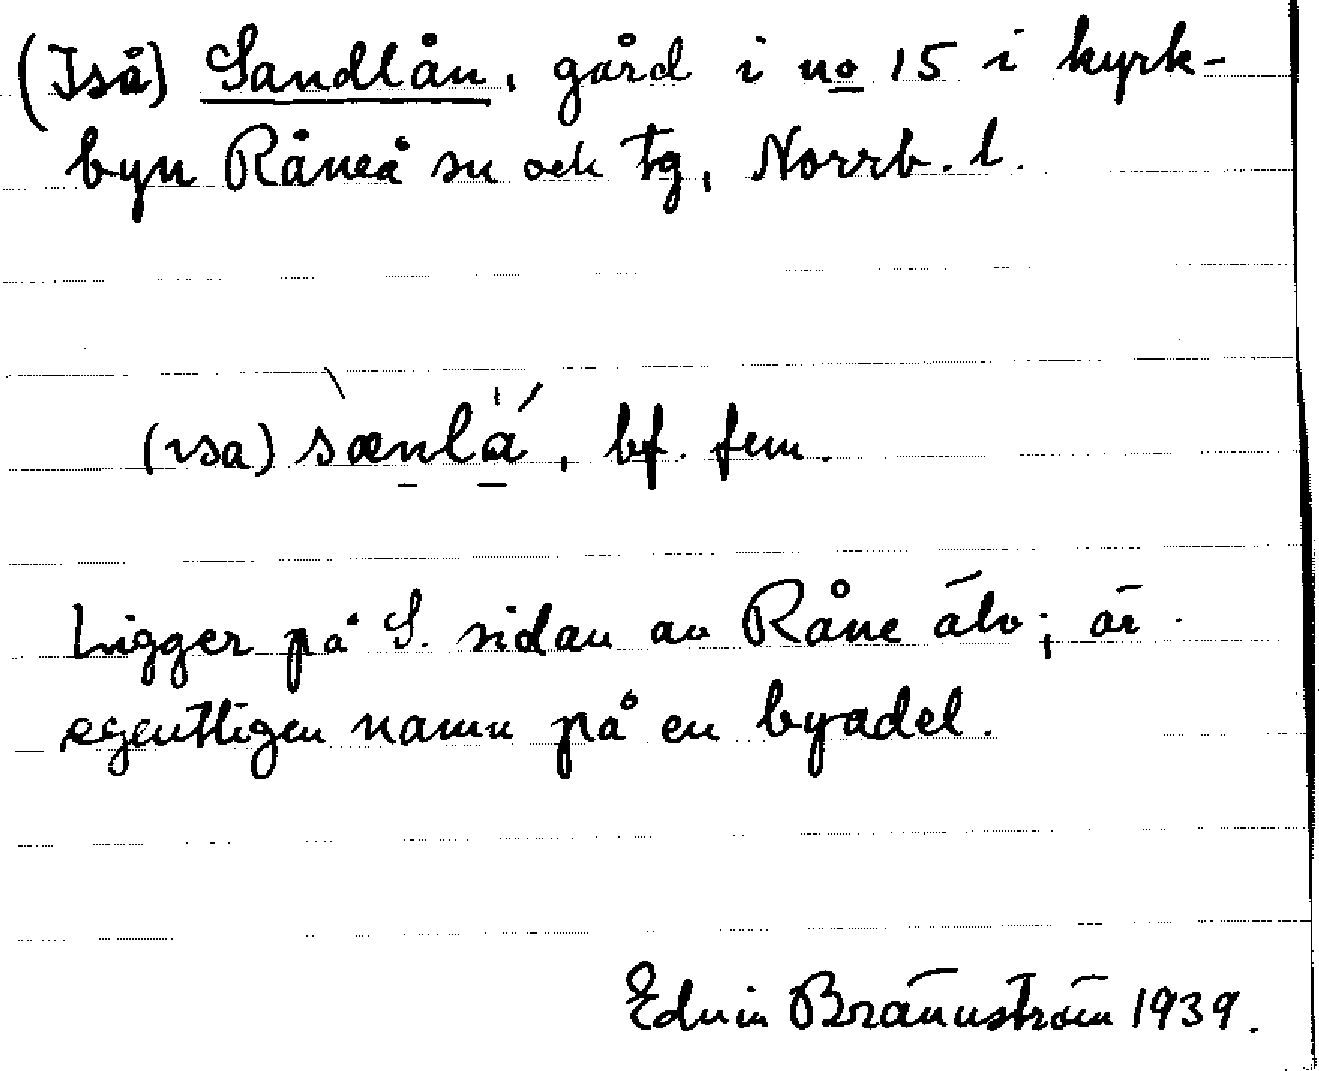 (Iså) Sandlån, gård i no 15 i kyrk-
byn Råneå sn och tg, Norrb. l.
(ɩsa) sænlá, bf. fem.
Ligger på S. sidan av Råne älv; är
egentligen namn på en byadel.
Edvin Brännström 1939.